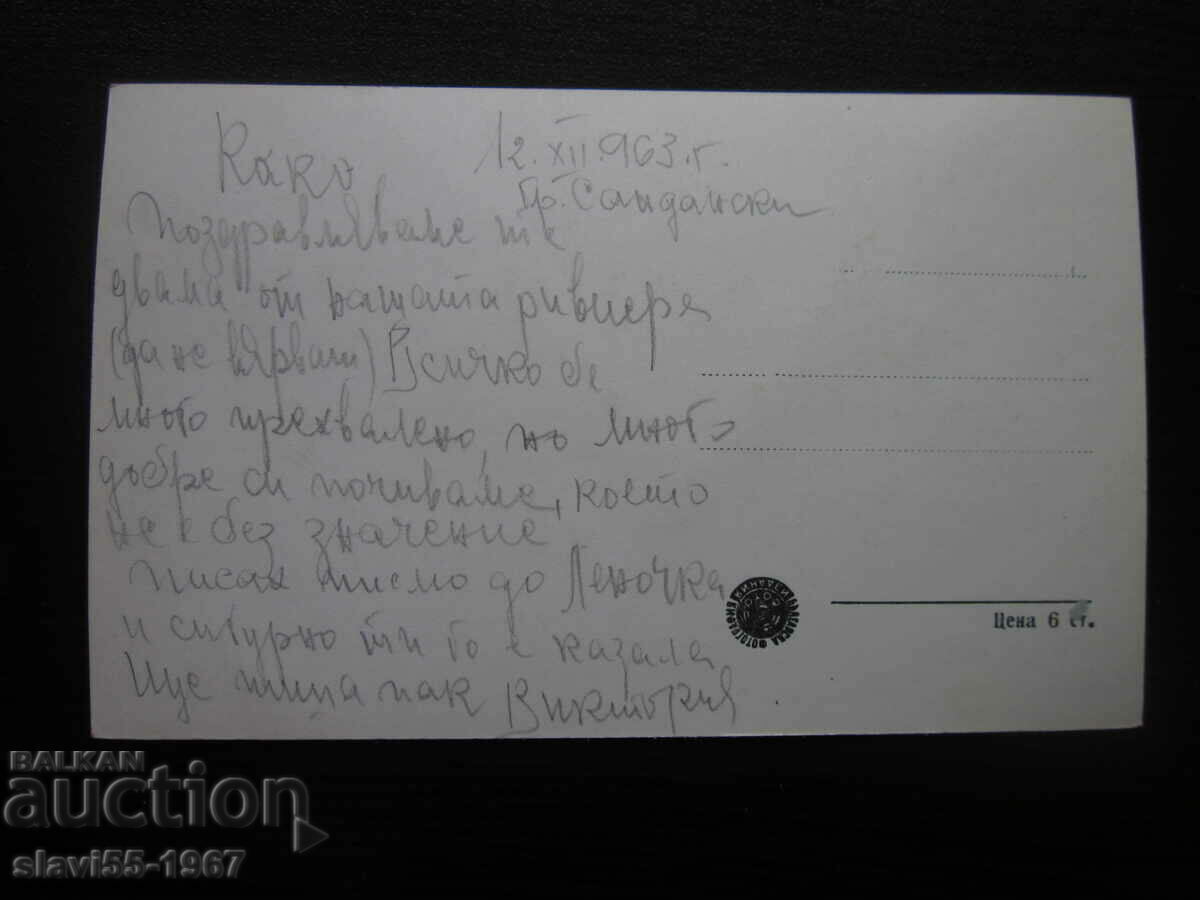 Како
12.XII.963.г.
гр. Сандански
Поздравляваме те
двама от нашата ривиера
(да не вярваш) Всичко бе
много прехвалено, но много
добре си почиваме, което
не е без значение
Писах писмо до Леночка
и сигурно ти го е казала
Ще пиша пак Виктория.
Цена 6 ст.
BALKAN
auction
slavi55-1967